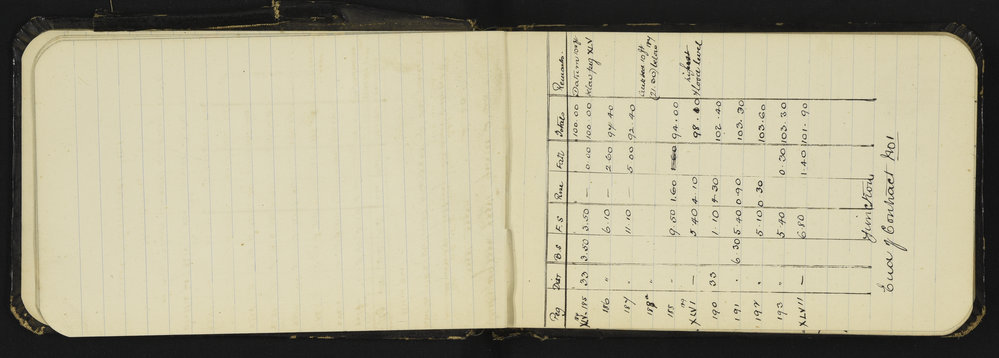 Peg Dist B.S F.S Rise Fall Total Remarks
100.00 Datum
XLV. 185 33 3.50 3.50 — 0.00 100.00 peg XLV
186 " 6.10 — 2.60 97.40
187 " 11.10 — 5.00 92.40
188a " 10 ft
(21.00) below
188 9.50 1.60 94.00
XLVI — 5.40 4.10 98.10 highest
flood level
190 33 1.10 4.30 102.40
191 " 6.30 5.40 0.90 103.30
192 " 5.10 0.30 103.60
193 " 5.40 0.30 103.30
XLVII — 6.80 1.40 101.90
Junction
End of Contract No1